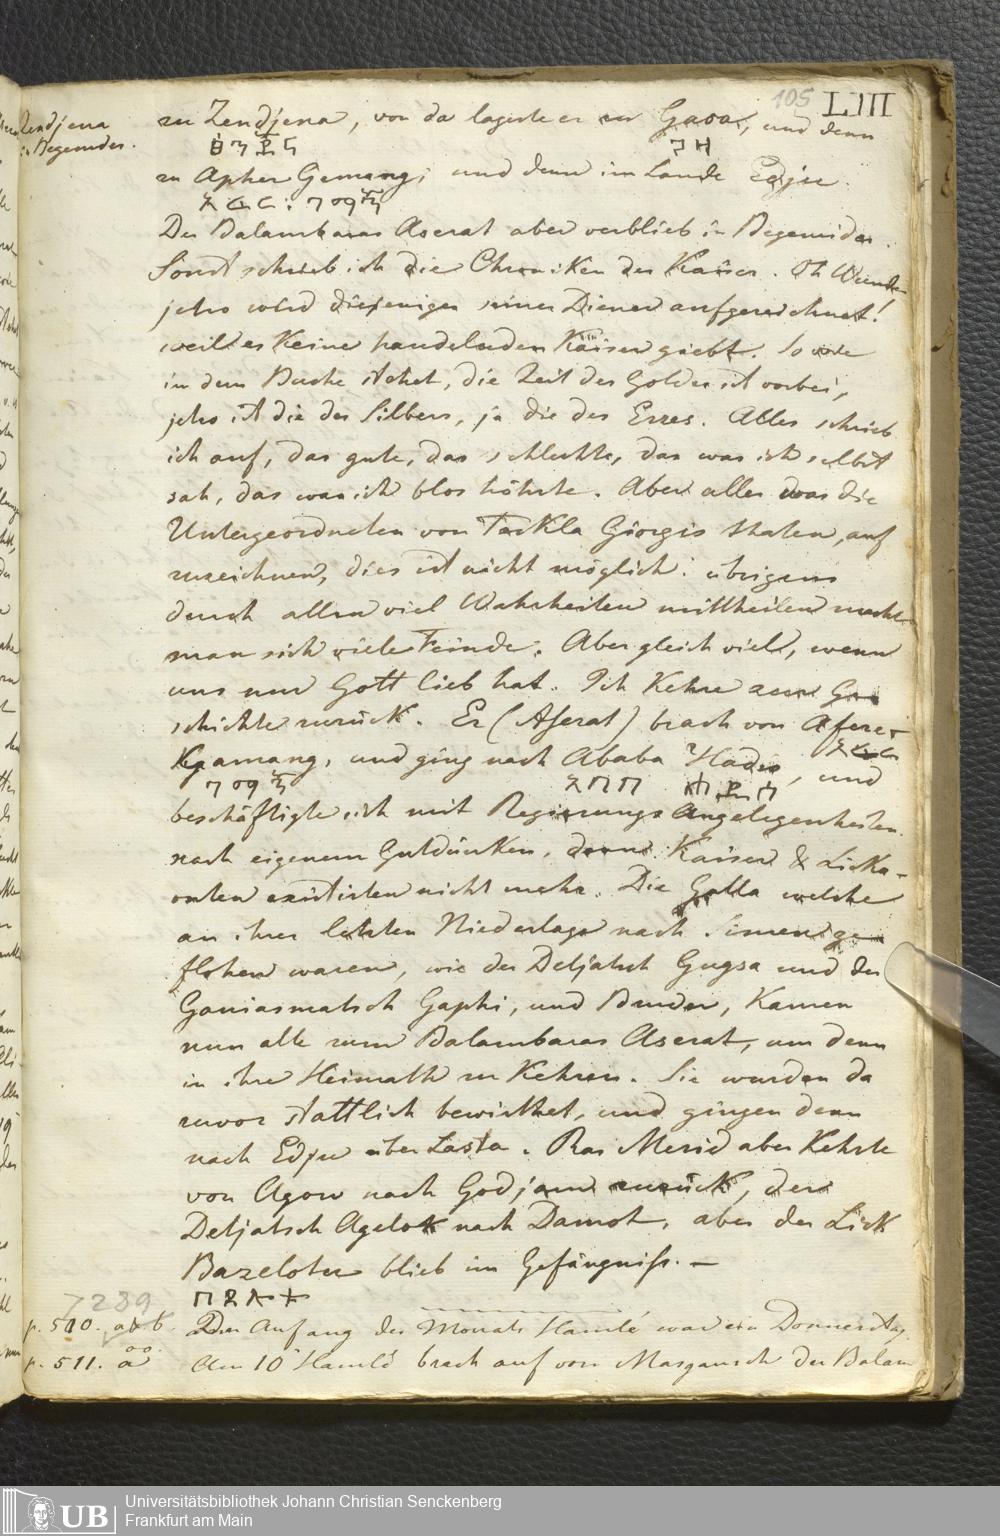 105 LIII
Zendjena
in Begemder.
zu Zendjena, von da lagerte er zu Gasa, und dann
zu Apher Gemang; und dann im Lande Edju.
Der Balambaras Aserat aber verblieb in Begemider.
Sonst schrieb ich die Chroniken der Kaiser. Oh Wunder
jetzo wird diejenigen seiner Diener aufgezeichnet!
weil es keine handelnden Kaiser giebt. So wie
in dem Buche stehet, die Zeit des Goldes ist vorbei,
jetzo ist die des Silbers, ja die des Erzes. Alles schrieb
ich auf, das gute, das schlechte, das was ich selbst
sah, das was ich blos höhrte. Aber alles was die
Untergeordneten von Tackla Giorgis thaten, auf
zuzeichnen, dies ist nicht möglich: übrigens
durch allzu viel Wahrheiten mittheilend macht
man sich viele Feinde. Aber gleich viel, wenn
uns nur Gott lieb hat. Ich kehre zur Ge-
schichte zurück. Er (Aserat) brach von Aferer
Kgamang, und ging nach Ababa Hades, und
beschäftigte sich mit Regierungs Angelegenheiten
nach eigenem Gutdünken, denn Kaiser & Licka-
onten existirten nicht mehr. Die Galla welche
an ihrer letzten Niederlage nach Simen ge-
flohen waren, wie der Detjatsch Gugsa und der
Ganiasmatsch Gaphi, und Bruder, kamen
nun alle zum Balambaras Aserat, um denn
in ihre Heimath zu kehren. Sie wurden da
zuvor stattlich bewirthet, und gingen denn
nach Edju über Lasta. Ras Merid aber kehrte
von Agow nach Godjam zurück, der
Detjatsch Agelo nach Damot, aber der Lick
Bazelotu blieb im Gefängniss. —
7289
p. 510. a b.
Den Anfang des Monats Hamlé war ein Donnerstag.
p. 511. a
Am 10 Hamlé brach auf von Masgansch der Balam
Universitätsbibliothek Johann Christian Senckenberg
UB
Frankfurt am Main